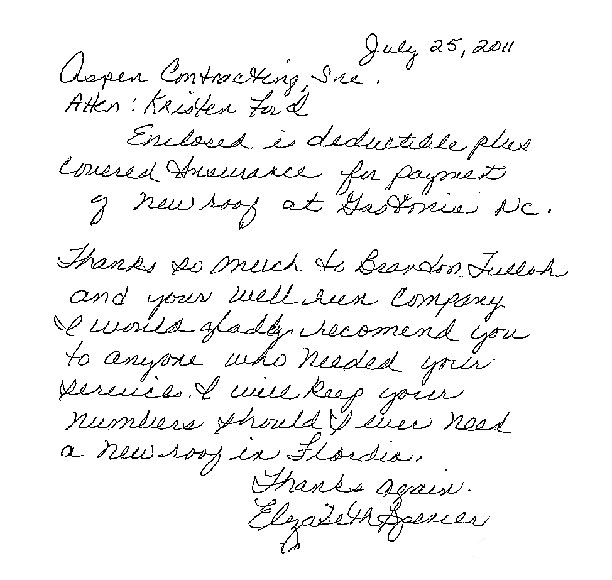 July 25, 2011
Aspen Contracting, Inc.
Atten: Kristen Ford
Enclosed is deductible plus
covered Insurance for payment
of new roof at Gastonia NC.
Thanks so much to Brandon Tulloh
and your well run Company
I would gladly recomend you
to anyone who needed your
service. I will keep your
numbers should I ever need
a new roof in Flordia.
Thanks again.
Elizabeth Spencer